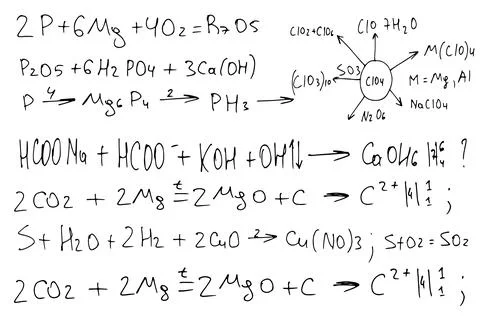 2P+6Mg+4O2=R7O5
P2O5+6H2PO4+3Ca(OH)
P 4→ Mg6P4 2→ PH3 →
ClO2+ClO6
ClO7H2O
M(ClO)4
M=Mg,Al
(ClO3)10 SO3
ClO4
NaClO4
N2O6
HCOONa + HCOO⁻ + KOH + OH↑↓ → CaOH6 ?
2CO2 + 2Mg t= 2MgO + C → C²⁺|4|¹₁;
S+H2O+2H2+2CuO 2→ Cu(NO)3; S+O2=SO2
2CO2 + 2Mg t= 2MgO + C → C²⁺|4|¹₁;